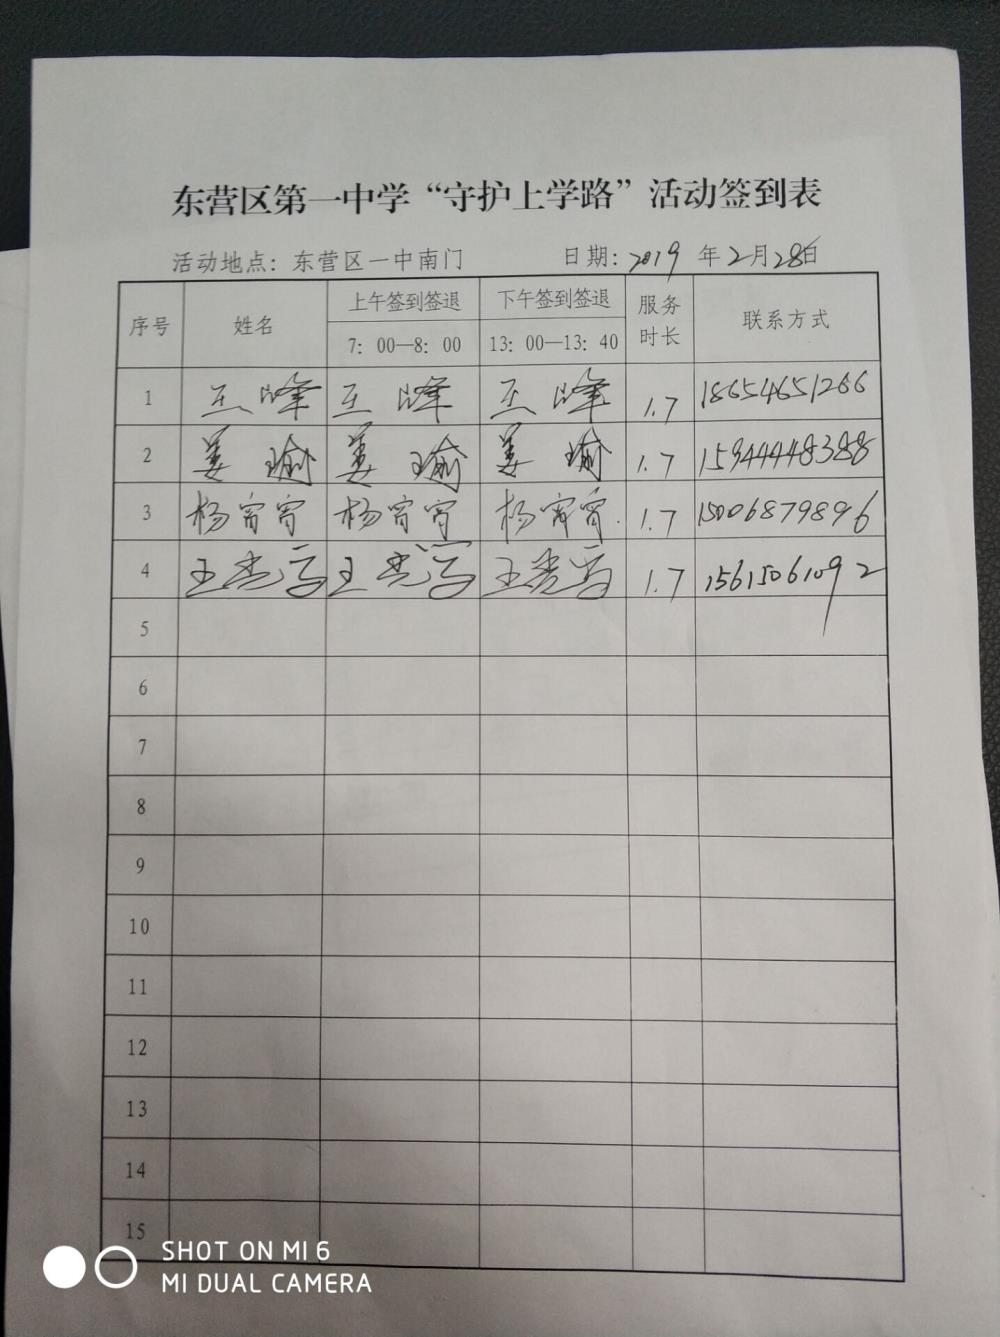 东营区第一中学“守护上学路”活动签到表
活动地点：东营区一中南门 日期：2019 年 2 月 28 日
序号 姓名 上午签到签退 下午签到签退 服务时长 联系方式
7：00—8：00 13：00—13：40
1 王峰 王峰 王峰 1.7 18654651266
2 姜瑜 姜瑜 姜瑜 1.7 15944448388
3 杨宵宵 杨宵宵 杨宵宵 1.7 15006879896
4 1.7 15615061092
5
6
7
8
9
10
11
12
13
14
15
SHOT ON MI 6
MI DUAL CAMERA